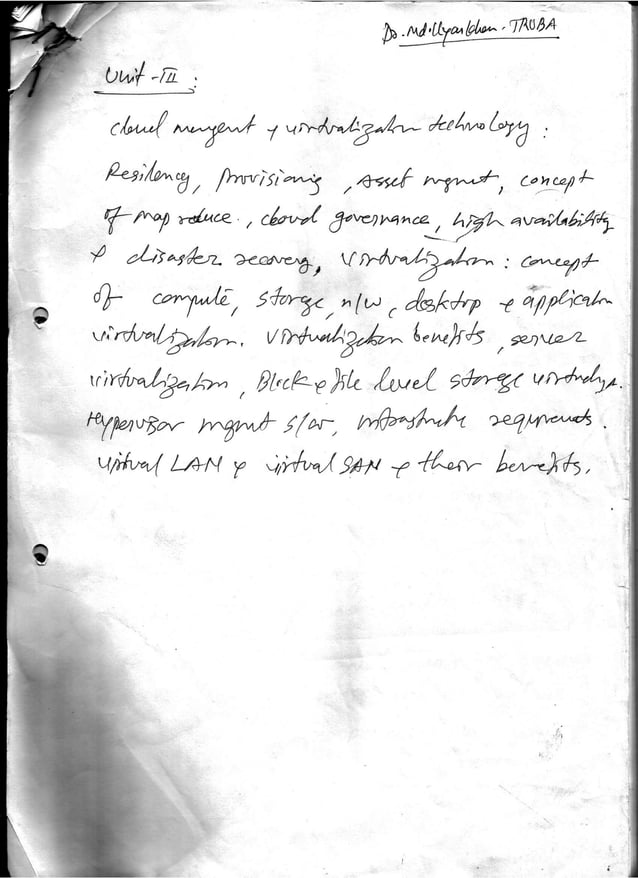 Do. Md. Ilyas Khan - TRUBA
Unit - III :
Cloud mangent & virtualization technology :
Resilency, Provisioning, Asset mgmt, concept
of map reduce, cloud governance, high availability
& disaster recovery, Virtualization : concept
of compute, storage, n/w, desktop & application
virtualization. Virtualization benefits, server
virtualization, Block & file level storage
Hypervisor mgmt s/w, infrastructure requirements.
Virtual LAN & virtual SAN & their benefits.